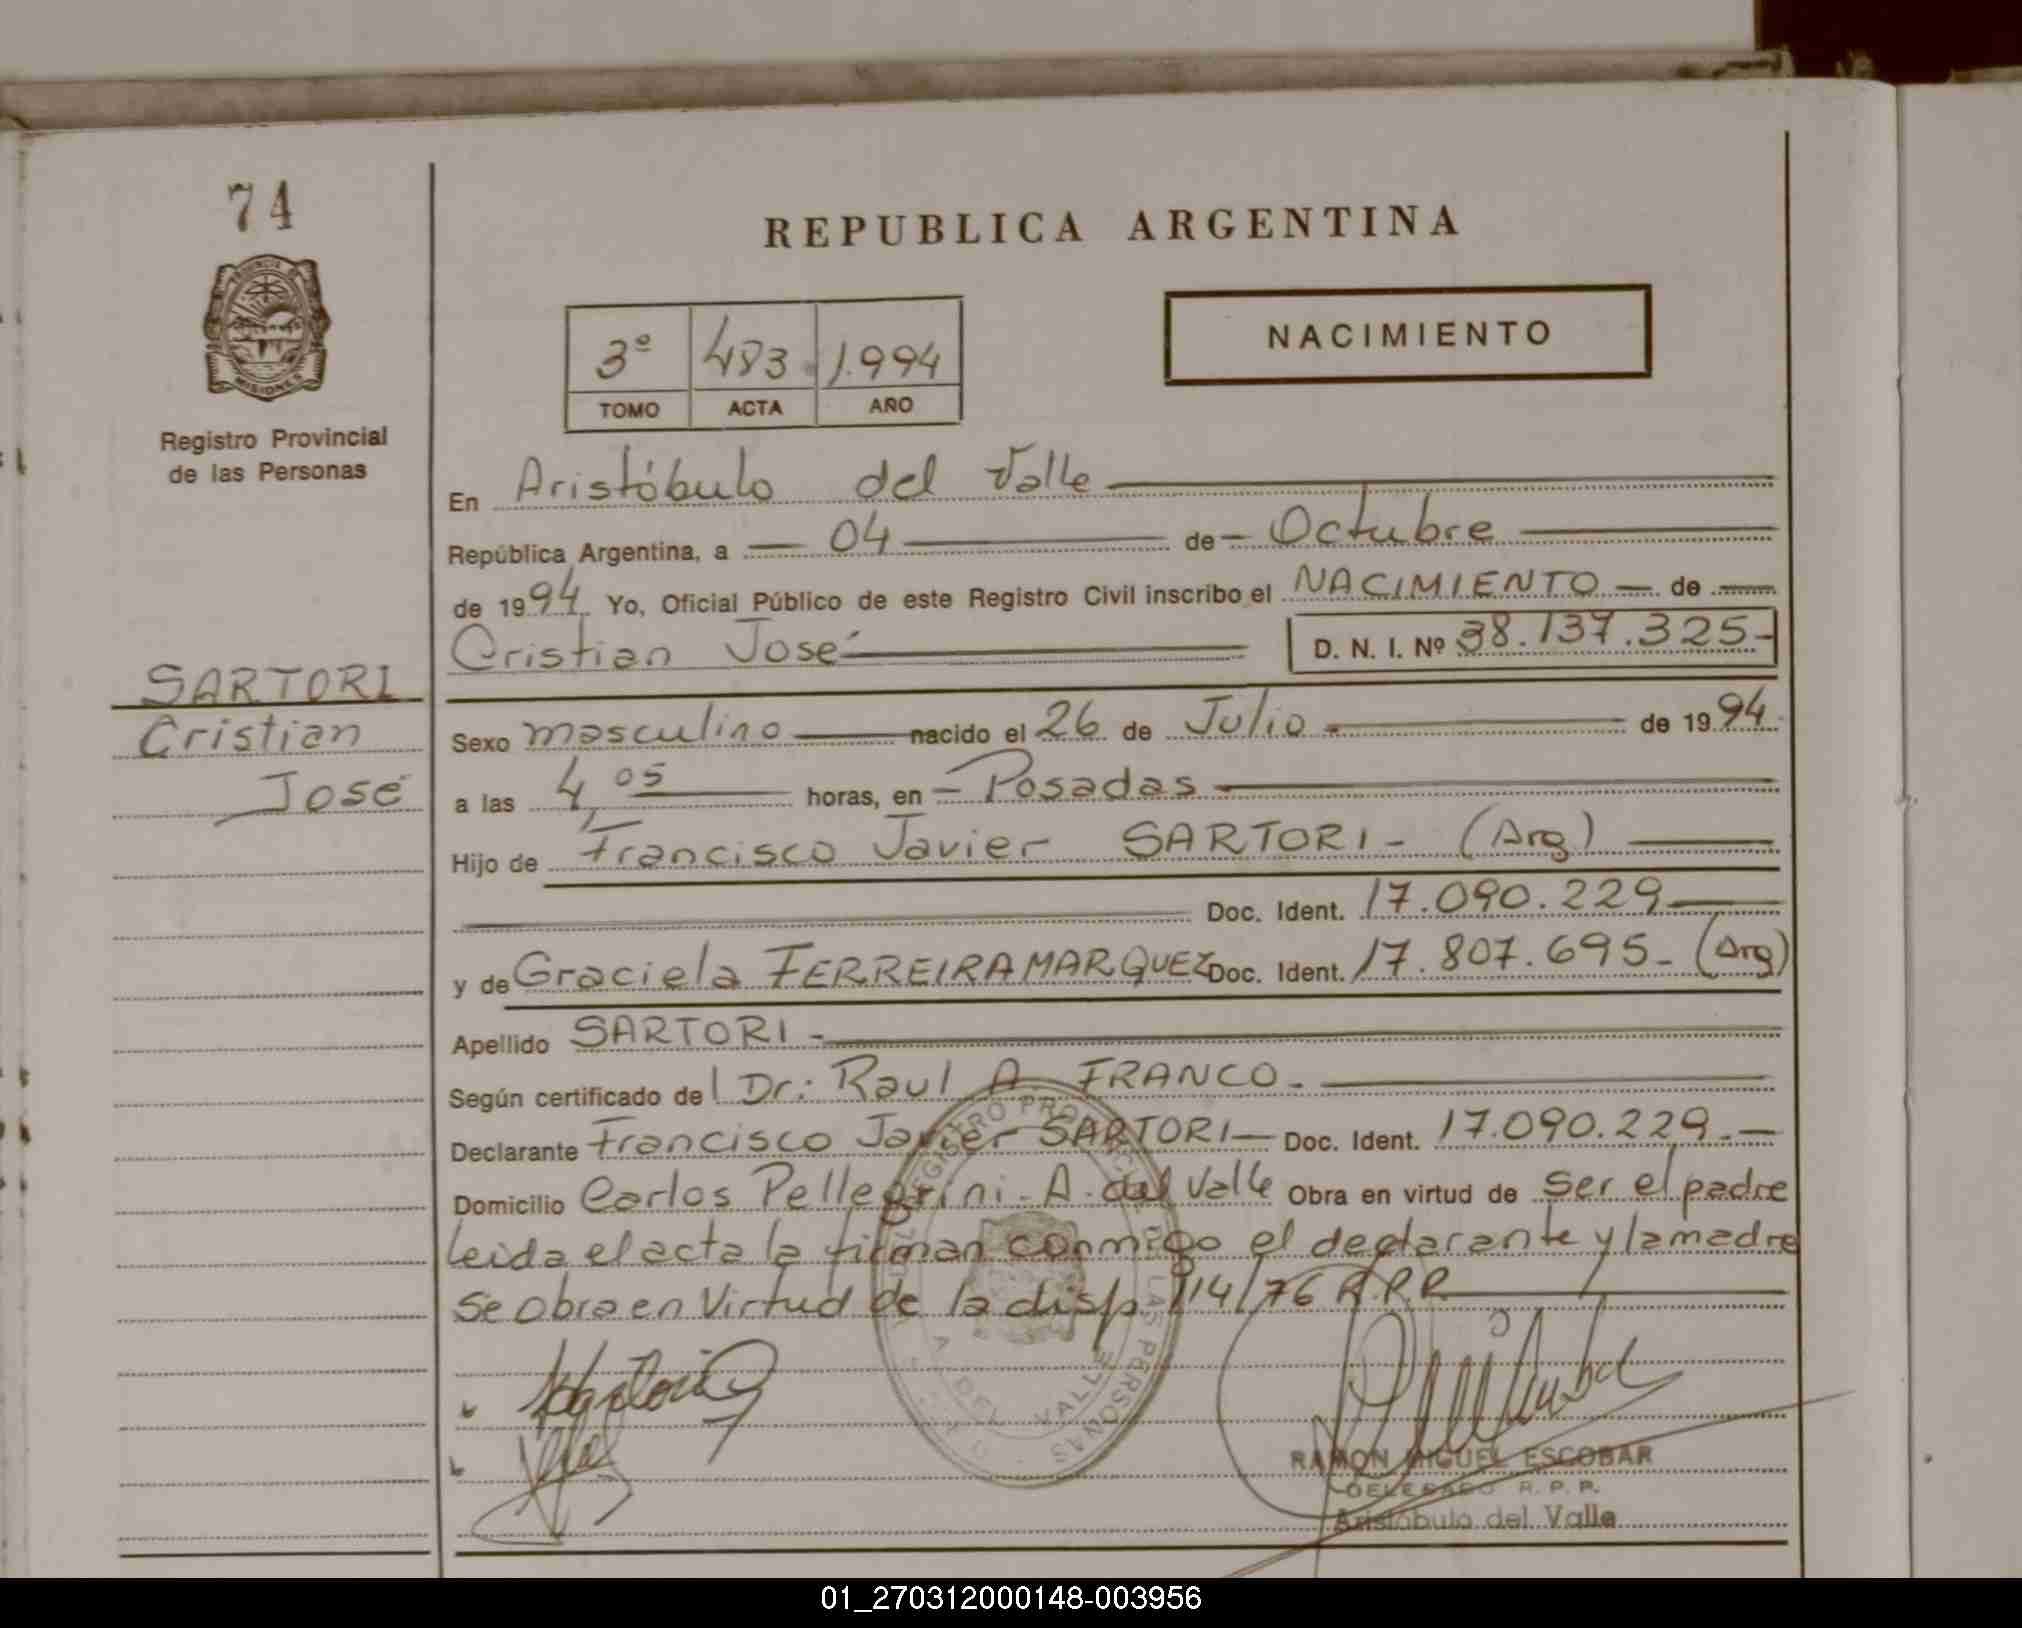 74
REPUBLICA ARGENTINA
PROVINCIA DE
MISIONES
Registro Provincial
de las Personas
NACIMIENTO
3º 483 1.994
TOMO ACTA AÑO
En Aristóbulo del Valle
República Argentina, a 04 de Octubre
de 1994 Yo, Oficial Público de este Registro Civil inscribo el NACIMIENTO de
Cristian José D. N. I. Nº 38.137.325-
SARTORI
Cristian
José
Sexo masculino nacido el 26 de Julio de 1994.
a las 4,05 horas, en Posadas
Hijo de Francisco Javier SARTORI - (Arg)
Doc. Ident. 17.090.229
y de Graciela FERREIRA MARQUEZ Doc. Ident. 17.807.695- (Arg)
Apellido SARTORI -
Según certificado del Dr: Raul A. FRANCO.
Declarante Francisco Javier SARTORI Doc. Ident. 17.090.229.
Domicilio Carlos Pellegrini - A. del Valle Obra en virtud de ser el padre
leida el acta la firman conmigo el declarante y la madre
se obra en virtud de la disp. 114/76 R.P.P.
REGISTRO PROVINCIAL LAS PERSONAS
A. DEL VALLE
RAMON MIGUEL ESCOBAR
DELEGADO R. P. P.
Aristóbulo del Valle
01_270312000148-003956